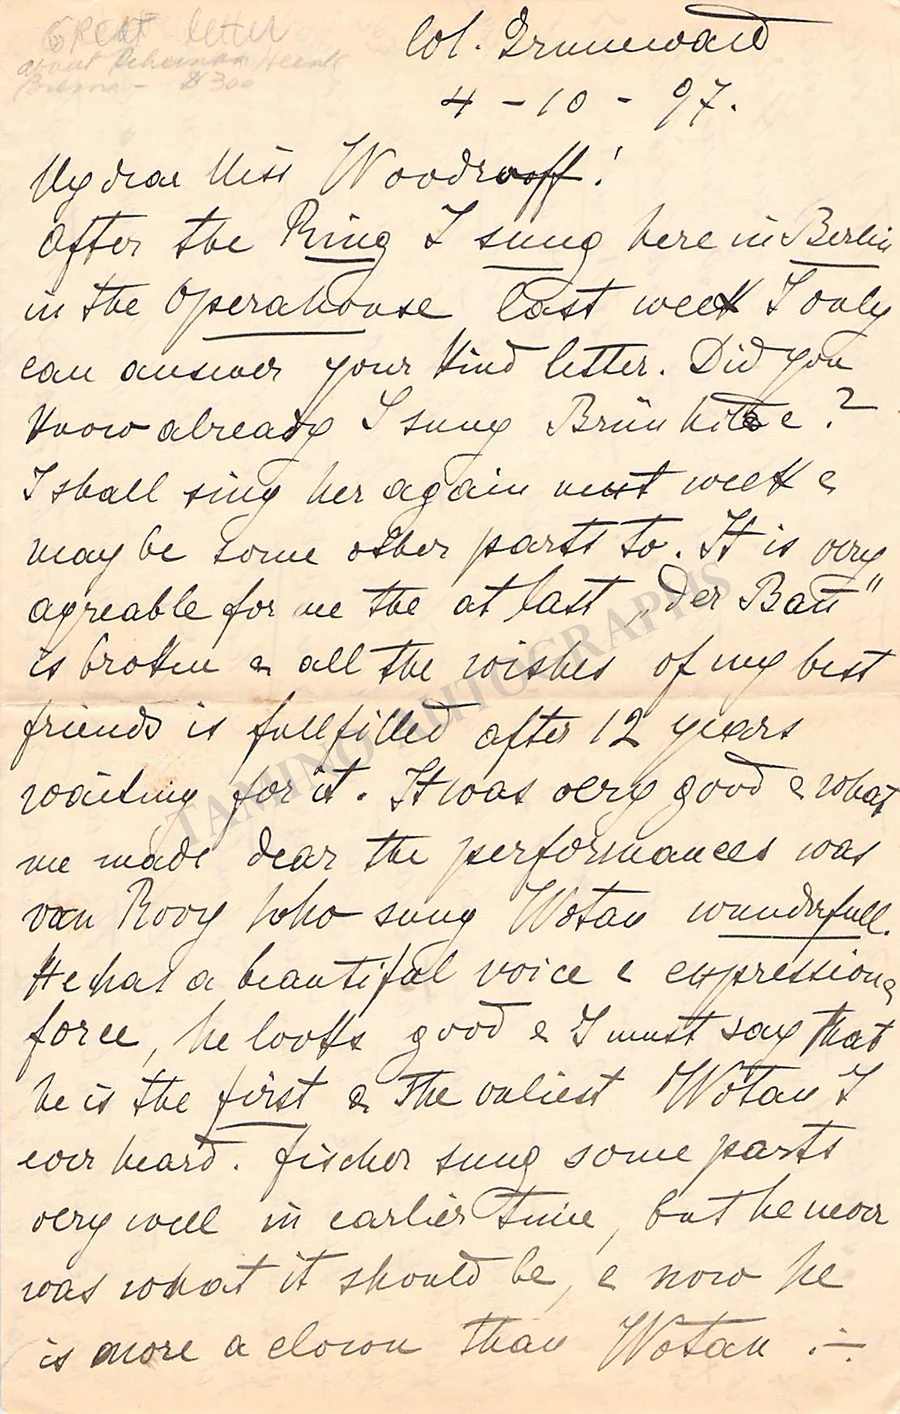 GReat letter
about
- $300
Col. Grunewald
4 - 10 - 97.
My dear Miss Woodruoff!
After the Ring I sung here in Berlin
in the Operahouse last week I only
can answer your kind letter. Did you
know already I sung Brünhilde?
I shall sing her again next week &
may be some other parts to. It is very
agreable for me the at last „der Bann"
is broken & all the wishes of my best
friends is fullfilled after 12 years
waiting for it. It was very good & what
me made dear the performances was
van Rooy who sung Wotan wunderfull.
He has a beautiful voice & expression &
force, he looks good & I must say that
he is the first & the onliest Wotan I
ever heard. Fischer sung some parts
very well in earlier time, but he never
was what it should be, & now he
is more a clown than Wotan .—
TAMINO AUTOGRAPHS